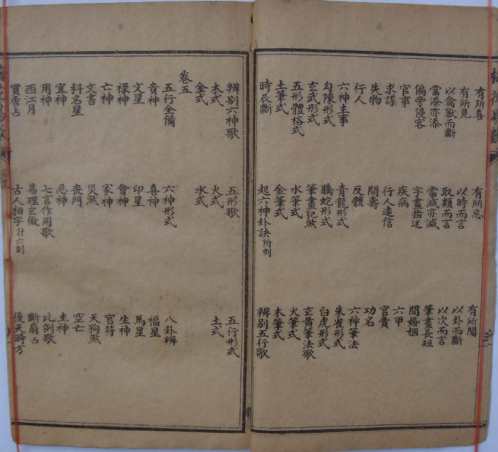 有所喜 有所忌 有所聞
有所見 以時而言 以卦而斷
以禽獸而斷 取類而言 以次而言
當添亦添 當減亦減 筆畫長短
偏旁侵客 字畫指迷 問婚姻
官事 疾病 六甲
求謀 行人遠信 官貴
行人 問壽 功名
失物 反體 六神筆法
六神主事 青龍形式 朱雀形式
勾陳形式 螣蛇形式 白虎形式
玄武形式 筆畫犯煞 玄黃筆法歌
五形體格式 水筆式 火筆式
土筆式 金筆式 木筆式
時辰斷 起六神卦訣 辨別五行歌
辨別六神歌 五形歌 五行形式
木式 火式 土式
金式 水式
卷五
五行全備 六神形式 八卦辨
貴神 喜神 福星
文星 印星 馬星
祿神 會神 生神
亡神 家神 官符
文書 災煞 天狗煞
科名星 喪門 空亡
宜神 忌神 主神
用神 七言作用歌 比例歌
西江月 易理玄微 斷扇占
買香占 古人相字 後天時方